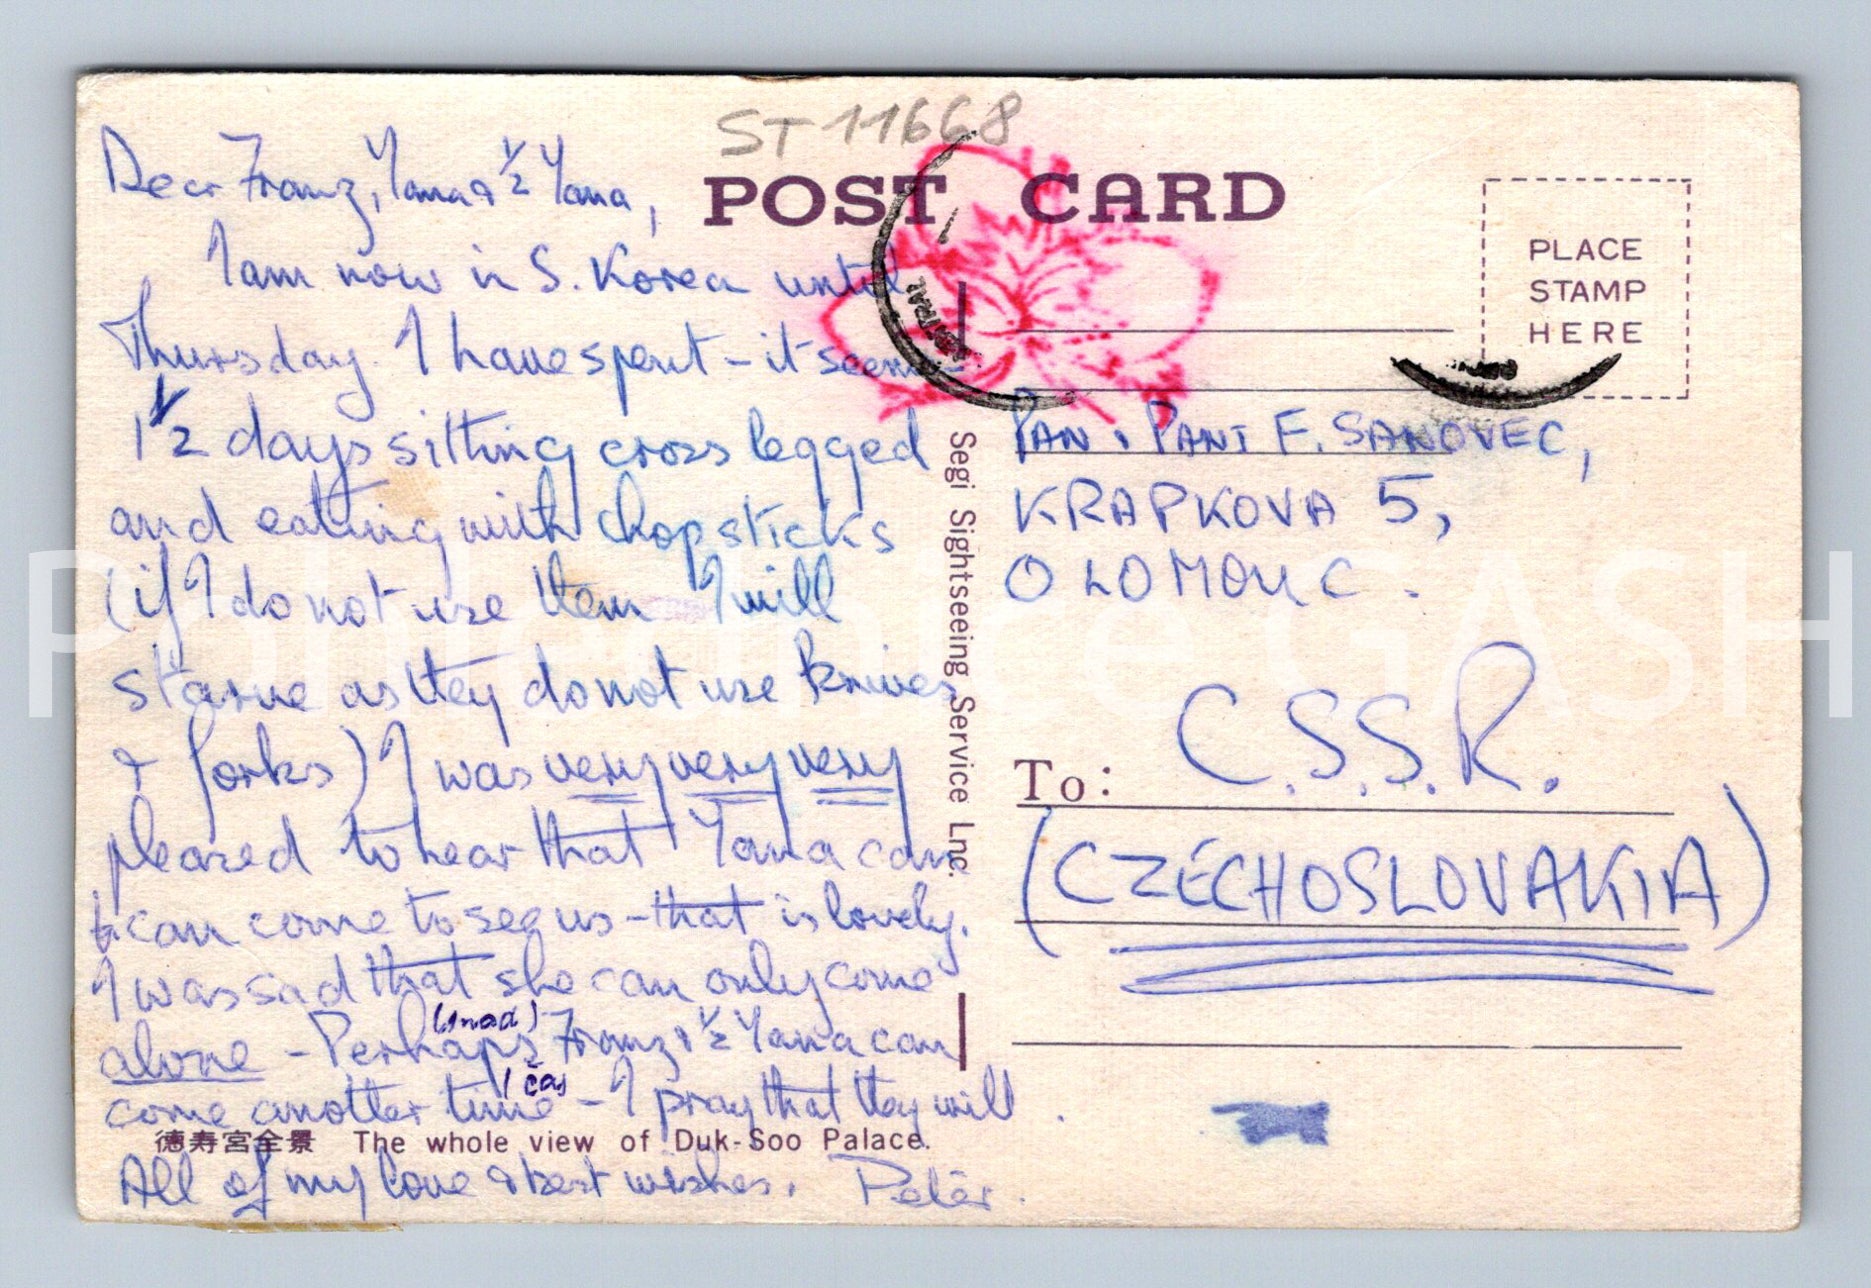 ST 11668
POST CARD
PLACE
STAMP
HERE
Dear Franz, Yana & ½ Yana,
I am now in S. Korea until
Thursday. I have spent - it seems -
1½ days sitting cross legged
and eating with chopsticks
(if I do not use them I will
starve as they do not use knives
& forks) I was very very very
pleased to hear that Yana can
can come to see us - that is lovely.
I was sad that she can only come
alone - Perhaps Franz & ½ Yana can
(snad)
come another time - I pray that they will.
čas
All of my love & best wishes. Peter.
德寿宮全景 The whole view of Duk-Soo Palace.
Segi Sightseeing Service Lnc.
PAN . PANI F. SANOVEC,
KRAPKOVA 5,
OLOMOUC.
To: C.S.S.R.
(CZECHOSLOVAKIA)
Pohlednice GASH